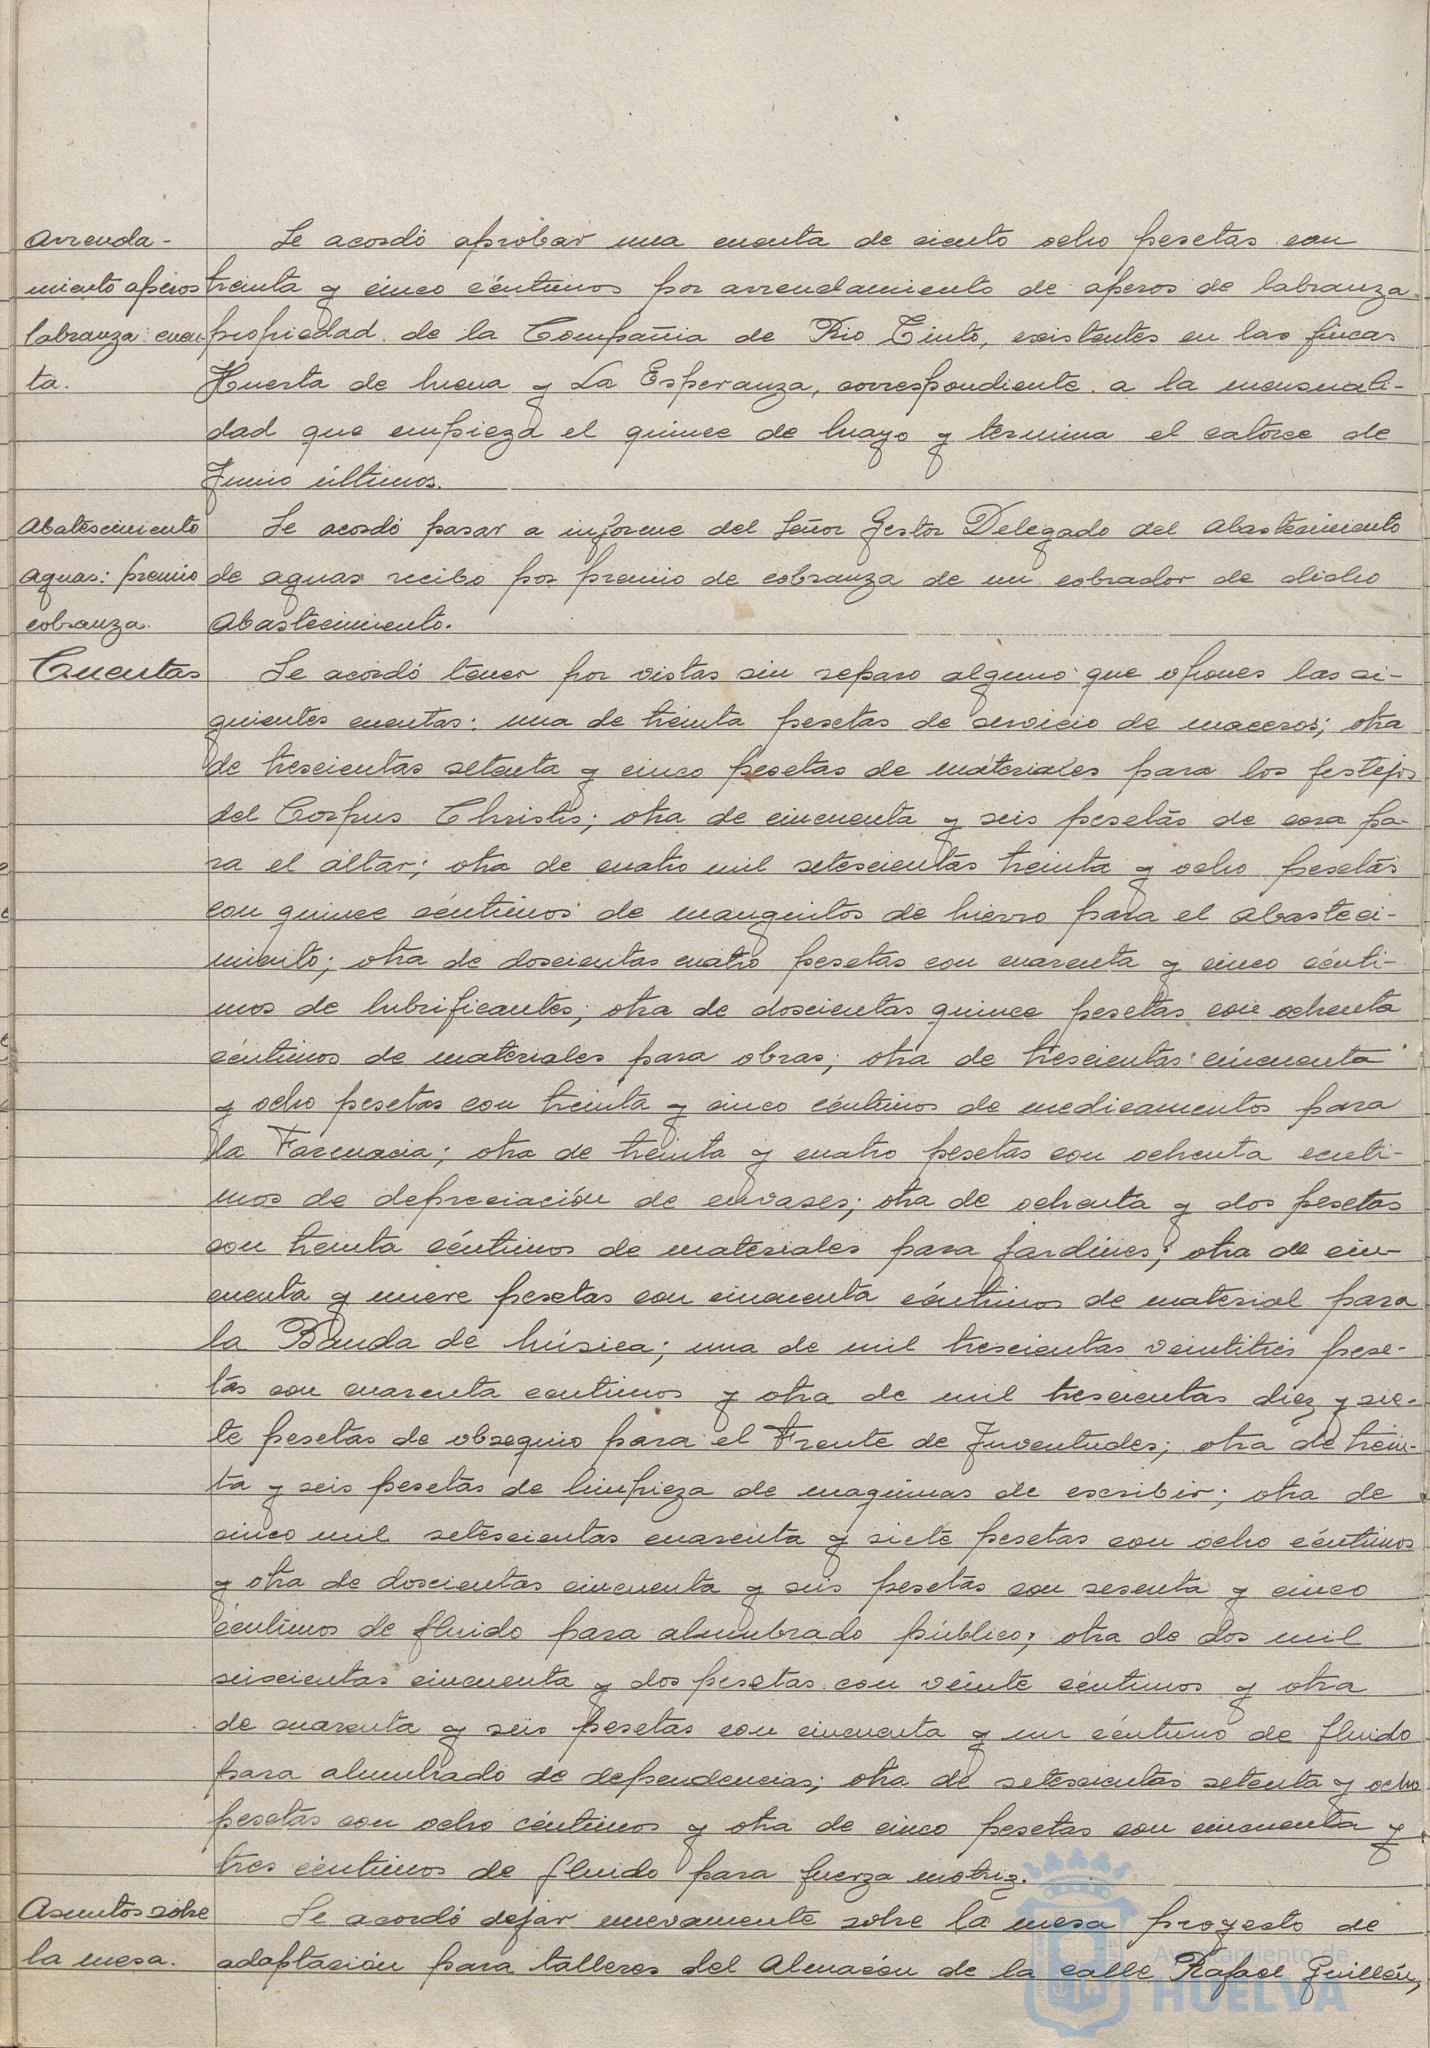 Arrenda-
miento aperos
labranza: cuen-
ta.
Se acordó aprobar una cuenta de ciento ocho pesetas con
treinta y cinco céntimos por arrendamiento de aperos de labranza
propiedad de la Compañia de Rio Tinto, existentes en las fincas
Huerta de Mena y La Esperanza, correspondiente a la mensuali-
dad que empieza el quince de Mayo y termina el catorce de
Junio últimos.
Abastecimiento
aguas: premio
cobranza.
Se acordó pasar a informe del Señor Gestor Delegado del Abastecimiento
de aguas recibo por premio de cobranza de un cobrador de dicho
Abastecimiento.
Cuentas
Se acordó tener por vistas sin reparo alguno que oponer las si-
guientes cuentas: una de treinta pesetas de servicio de maceros; otra
de trescientas setenta y cinco pesetas de materiales para los festejos
del Corpus Christis; otra de cincuenta y seis pesetas de cera pa-
ra el altar; otra de cuatro mil setescientas treinta y ocho pesetas
con quince céntimos de manguitos de hierro para el Abasteci-
miento; otra de doscientas cuatro pesetas con cuarenta y cinco cénti-
mos de lubrificantes; otra de doscientas quince pesetas con ochenta
céntimos de materiales para obras; otra de trescientas cincuenta
y ocho pesetas con treinta y cinco céntimos de medicamentos para
la Farmacia; otra de treinta y cuatro pesetas con ochenta centi-
mos de depreciación de envases; otra de ochenta y dos pesetas
con treinta céntimos de materiales para jardines; otra de cin-
cuenta y nueve pesetas con cincuenta céntimos de material para
la Banda de Música; una de mil trescientas veintitrés pese-
tas con cuarenta centimos y otra de mil trescientas diez y sie-
te pesetas de obsequio para el Frente de Juventudes; otra de trein-
ta y seis pesetas de limpieza de maquinas de escribir; otra de
cinco mil setescientas cuarenta y siete pesetas con ocho céntimos
y otra de doscientas cincuenta y seis pesetas con sesenta y cinco
céntimos de fluido para alumbrado público; otra de dos mil
seiscientas cincuenta y dos pesetas con veinte céntimos y otra
de cuarenta y seis pesetas con cincuenta y un céntimo de fluido
para alumbrado de dependencias; otra de setescientas setenta y ocho
pesetas con ocho céntimos y otra de cinco pesetas con cincuenta y
tres céntimos de fluido para fuerza motriz.
Asuntos sobre
la mesa.
Se acordó dejar nuevamente sobre la mesa proyecto de
adaptación para talleres del Almacén de la calle Rafael Guillén,
Ayuntamiento de
HUELVA